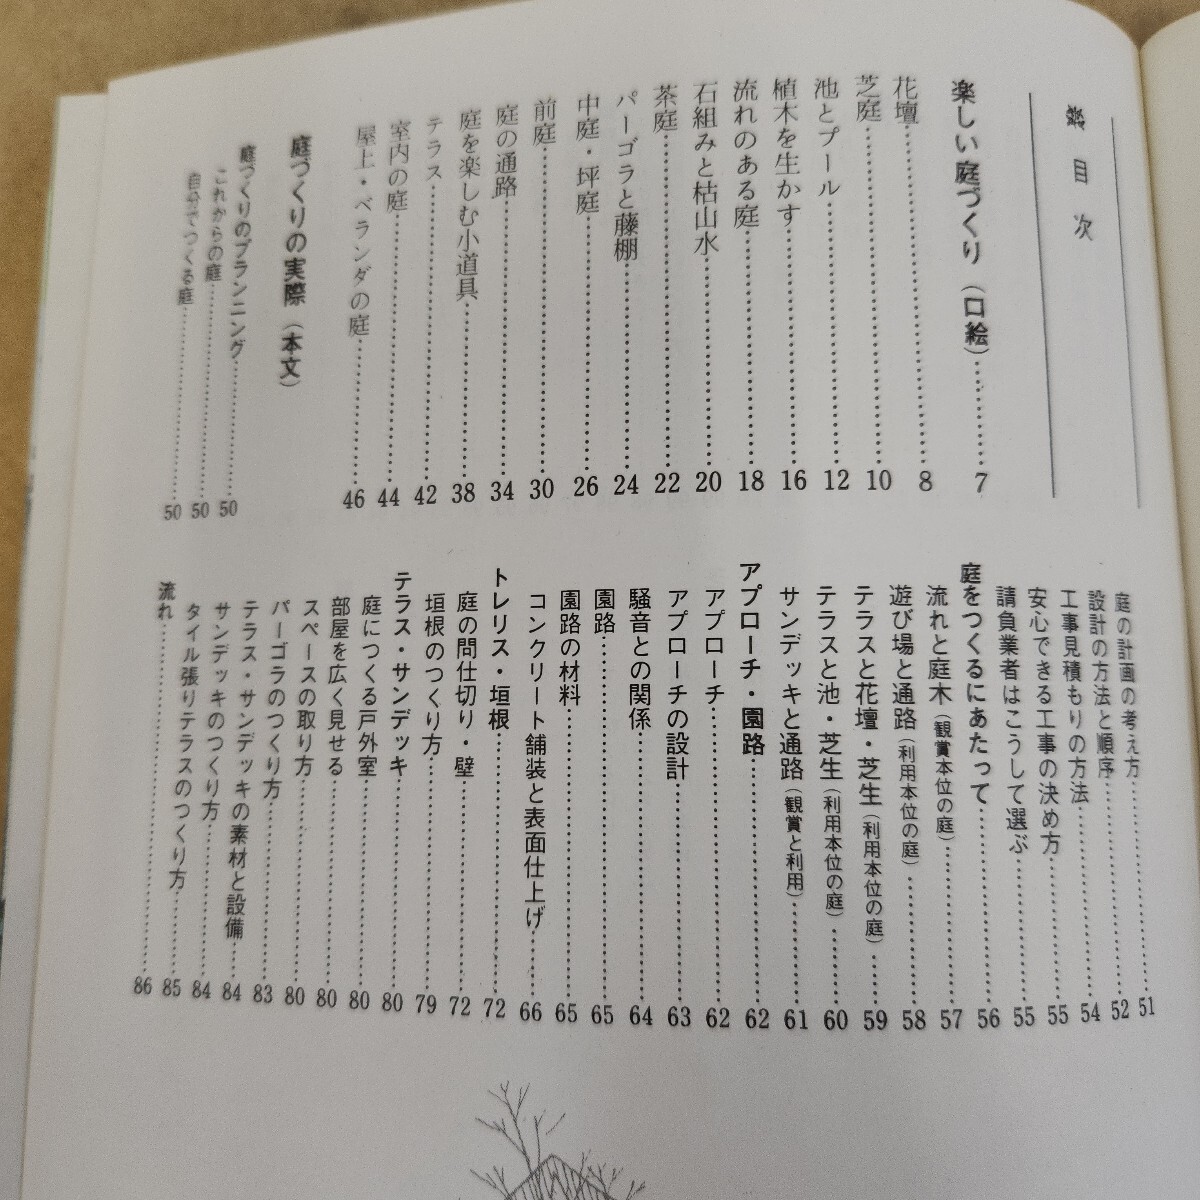 目次
楽しい庭づくり（口絵）……7
花壇……8
芝庭……10
池とプール……12
植木を生かす……16
流れのある庭……18
石組みと枯山水……20
茶庭……22
パーゴラと藤棚……24
中庭・坪庭……26
前庭……30
庭の通路……34
庭を楽しむ小道具……38
テラス……42
室内の庭……44
屋上・ベランダの庭……46
庭づくりの実際（本文）
庭づくりのプランニング……50
これからの庭……50
自分でつくる庭……50
庭の計画の考え方……51
設計の方法と順序……52
工事見積もりの方法……54
安心できる工事の決め方……55
請負業者はこうして選ぶ……55
庭をつくるにあたって……56
流れと庭木（観賞本位の庭）……57
遊び場と通路（利用本位の庭）……58
テラスと花壇・芝生（利用本位の庭）……59
テラスと池・芝生（利用本位の庭）……60
サンデッキと通路（観賞と利用）……61
アプローチ・園路……62
アプローチ……62
アプローチの設計……63
騒音との関係……64
園路……65
園路の材料……65
コンクリート舗装と表面仕上げ……66
トレリス・垣根……72
庭の間仕切り・壁……72
垣根のつくり方……79
テラス・サンデッキ……80
庭につくる戸外室……80
部屋を広く見せる……80
スペースの取り方……80
パーゴラのつくり方……83
テラス・サンデッキの素材と設備……84
サンデッキのつくり方……84
タイル張りテラスのつくり方……85
流れ……86